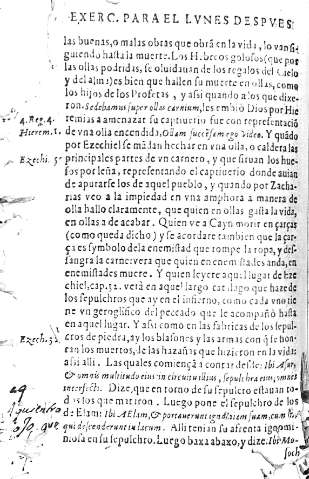 EXERC. PARA EL LVNES DESPVES
las buenas, o malas obras que obrã en la vida, lo van si-
guiendo hasta la muerte. Los Hebreos golosos que por
las ollas podridas, se oluidauan de los regalos del Cielo
y del alma: es bien que hallen su muerte en ollas, como
los hijos de los Profetas, y asi quando a los que dixe-
ron. Sedebamus super ollas carnium, les embio Dios por Hie
4. Reg. 4.
remias a amenazar su captiuerio fue con representaciõ
Hierem. 1.
de vna olla encendida, Ollam succensam ego video. Y quãdo
por Ezechiel se mãdan hechar en vna olla, o caldera las
Ezech. 5.
principales partes de vn carnero, y que siruan los hues-
fos por leña, representando el captiuerio donde auian
de apurarse los de aquel pueblo, y quando por Zacha-
rias veo a la impiedad en vna amphora a manera de
olla hallo claramente, que quien en ollas gasta la vida,
en ollas a de acabar. Quien ve a Cayn morir en çarças
(como queda dicho) y se acordare tambien que la çar-
ça es symbolo de la enemistad que rompe la ropa, y des-
sangra la carne: vera que quien en enemistades anda, en
enemistades muere. Y quien leyere aquel lugar de Eze
chiel, cap. 32. verà en aquel largo catalago que haze de
los sepulchros que ay en el infierno, como cada vno tie
ne vn geroglifico del peccado que le acompañó hasta
en aquel lugar. Y asi como en las fabricas de los sepul-
cros de piedra, ay los blasones, y las armas con q̃ le hon-
Ezech. 32.
ran los muertos, de las hazañas que hizieron en la vida:
assi alli. Las quales començã a contar desde: Ibi Asur,
& omnis multitudo eius in circuitu illius, sepulchra eius, omnes
interfecti. Dize, que en torno de su sepulcro estauan to-
dos los que matiron. Luego pone el sepulchro de los
de Elam: Ibi AElam, & portauerunt ignominiam suam, cum his
qui descenderunt in lacum. Alli tenian su afrenta ignomi-
niosa en su sepulchro. Luego baxa abaxo, y dize. Ibi Mo-
soch